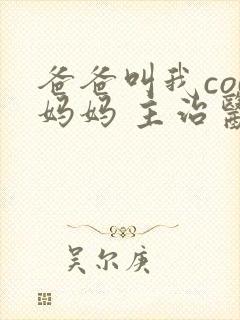 爸爸叫我co
妈妈 主治
吴尔庚